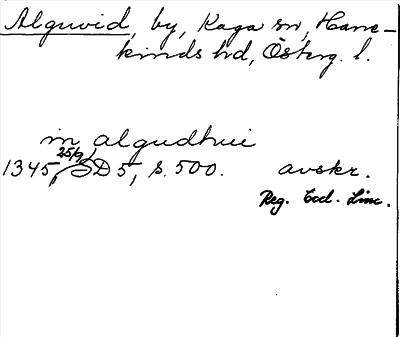 Alguvid, by, Kaga sn, Hane-
kinds hd, Österg. l.
in algudhui
25/9
1345, SD 5, s. 500. avskr.
Reg. Eccl. Linc.